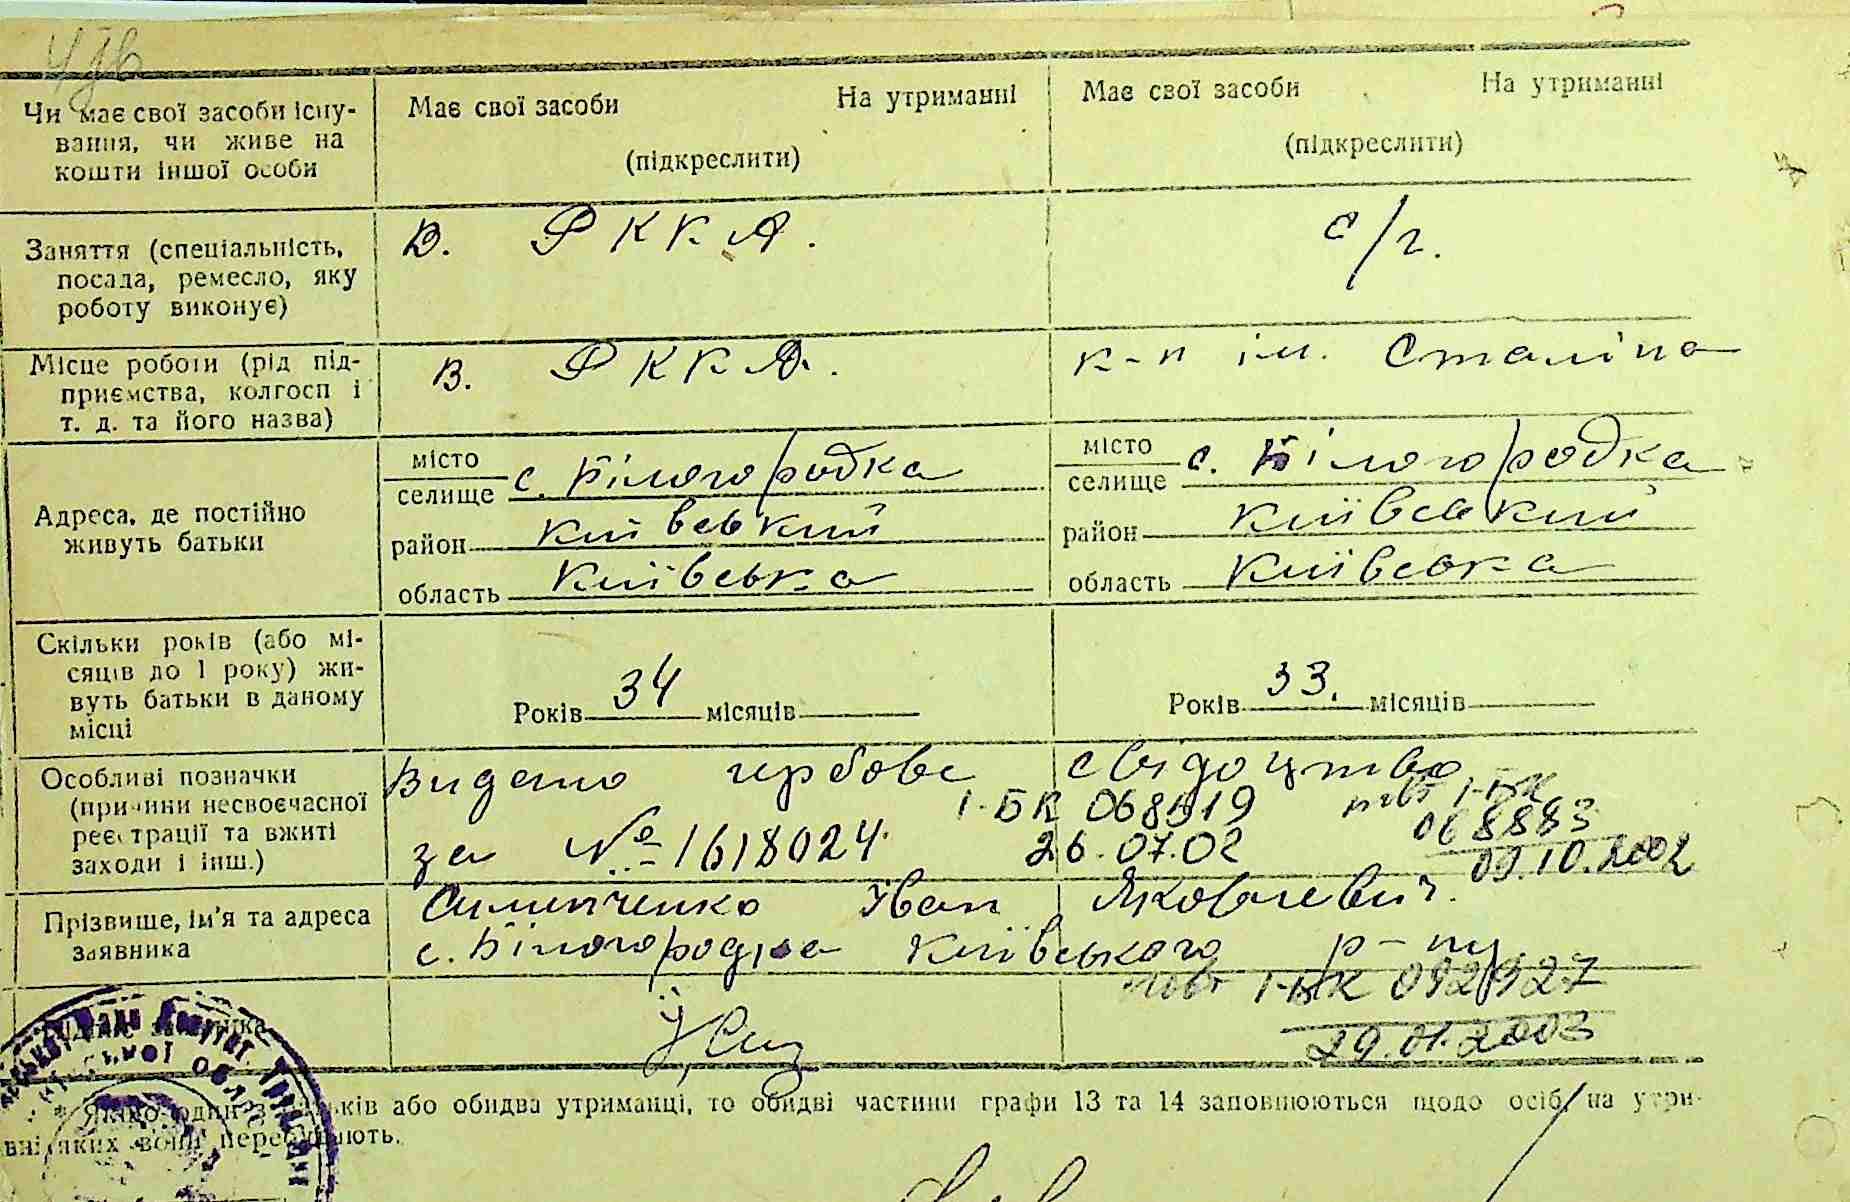 Чи має свої засоби існу-
вання, чи живе на
кошти іншої особи
Має свої засоби На утриманні
(підкреслити)
Має свої засоби На утриманні
(підкреслити)
Заняття (спеціальність,
посада, ремесло, яку
роботу виконує)
В. РККА.
с/г.
Місце роботи (рід під-
приємства, колгосп і
т. д. та його назва)
В. РККА.
к-п ім. Сталіна
Адреса, де постійно
живуть батьки
місто
селище с. Білогородка
район Київський
область Київська
місто
селище с. Білогородка
район Київський
область Київська
Скільки років (або мі-
сяців до 1 року) жи-
вуть батьки в даному
місці
Років 34 місяців
Років 33. місяців
Особливі позначки
(причини несвоєчасної
реєстрації та вжиті
заходи і інш.)
Видано гербове свідоцтво
І-БК 068519 повт І-БК
068883
за № 1618024 26.07.02
09.10.2002
Прізвище, ім'я та адреса
заявника
Іван Якович
с. Білогородка Київського р-ну
повт І-БК 092927
29.01.2003
* Якщо один з батьків або обидва утриманці, то обидві частини графи 13 та 14 заповнюються щодо осіб, на утри-
вні яких вони перебувають.